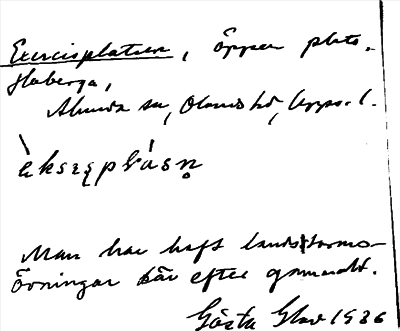 Exercisplatsen, Öppen plats.
Haberga,
Alunda sn, Olands hd, Upps. l.
Man har haft landstorms-
övningar där efter gammalt.
Gösta 1936